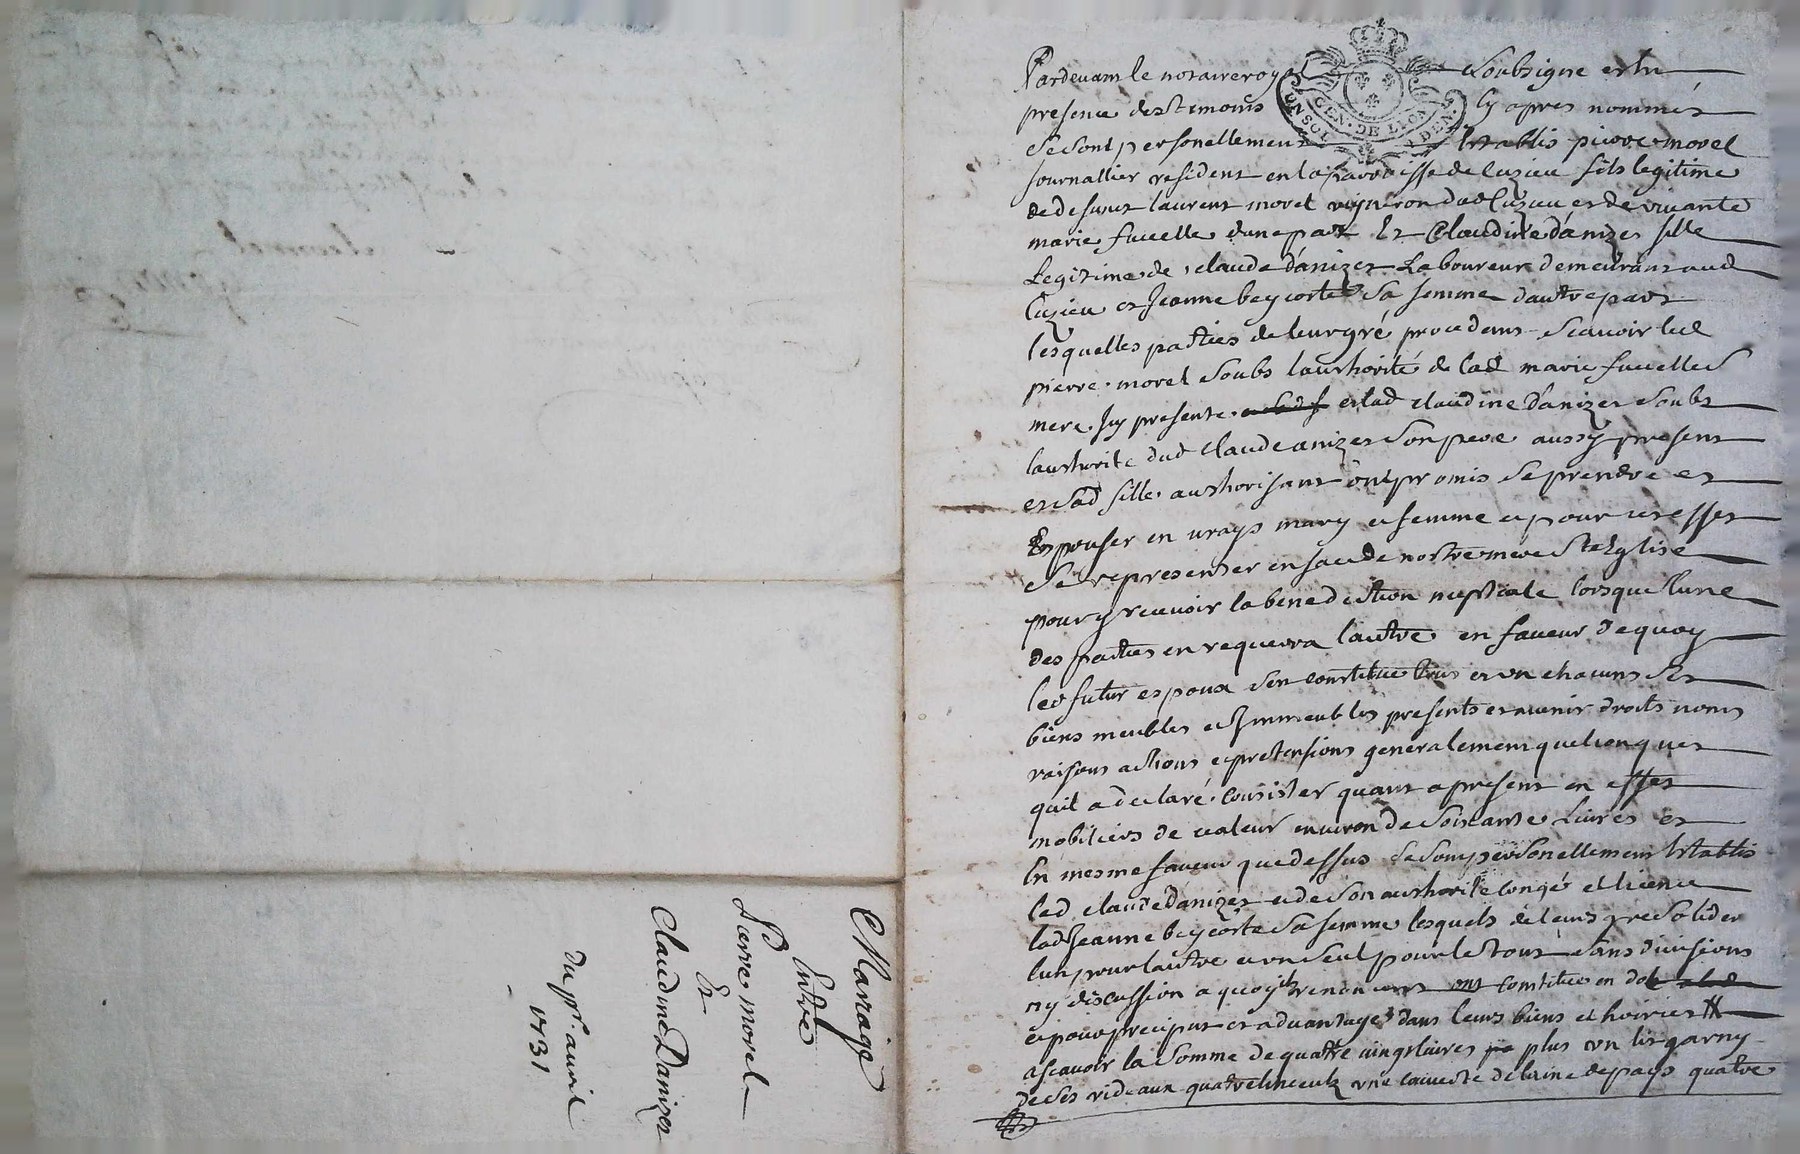 Mariage
Entre
Pierre morel
Et
Claudine Danizet
du pr. avril
1731
Pardevant le notaire royal soubsigné et en
presence des temoins cy apres nommés
se sont personellement Establis pierre morel
journallier resident en la parroisse de Cuzieu fils legitime
de defunct laurent morel vigneron dud Cuzieu et de vivante
marie fuvelle d'une part Et Claudine danizet fille
Legitime de claude danizet Laboureur demeurant aud
Cuzieu et Jeanne beycorte sa femme d'autre part
lesquelles parties de leur gré procedans scavoir led
pierre morel soubs lauthorité de lad marie fuvelle S
mere Icy presente et lad claudine danizet soubs
lauthorité dud claude anizet son pere aussy present
et sad fille authorisant ont promis se prendre et
Espouser en vrays mary et femme et pour cet effet
se representer en face de nostre mere Ste Eglise
pour y recevoir la benediction nuptiale lorsque l'une
des parties en requerra l'autre en faveur de quoy
led futur espoux s'en constitue tous et un chacuns ses
biens meubles et Immeubles presents et avenir droits noms
raisons actions et pretensions generalement quelconques
quil a declaré consister quant a present en effet
mobiliers de valeur environ de soixante Livres et
En mesme faveur que dessus se sont personellement Establis
led claude danizet et de son authorité congé et licence
lad Jeanne beycorte sa femme lesquels de leurs gre solider
lun pour lautre et un seul pour le tout sans divisions
ny discussion a quoy ils renoncent ont constitué en dot
et pour preciput et advantage dans leurs biens et hoiries
ascavoir la somme de quatre vingt livres plus un lit garny
de ses rideaux quatre linceulz une couverte de laine de pays quatre
GEN. DE LYON